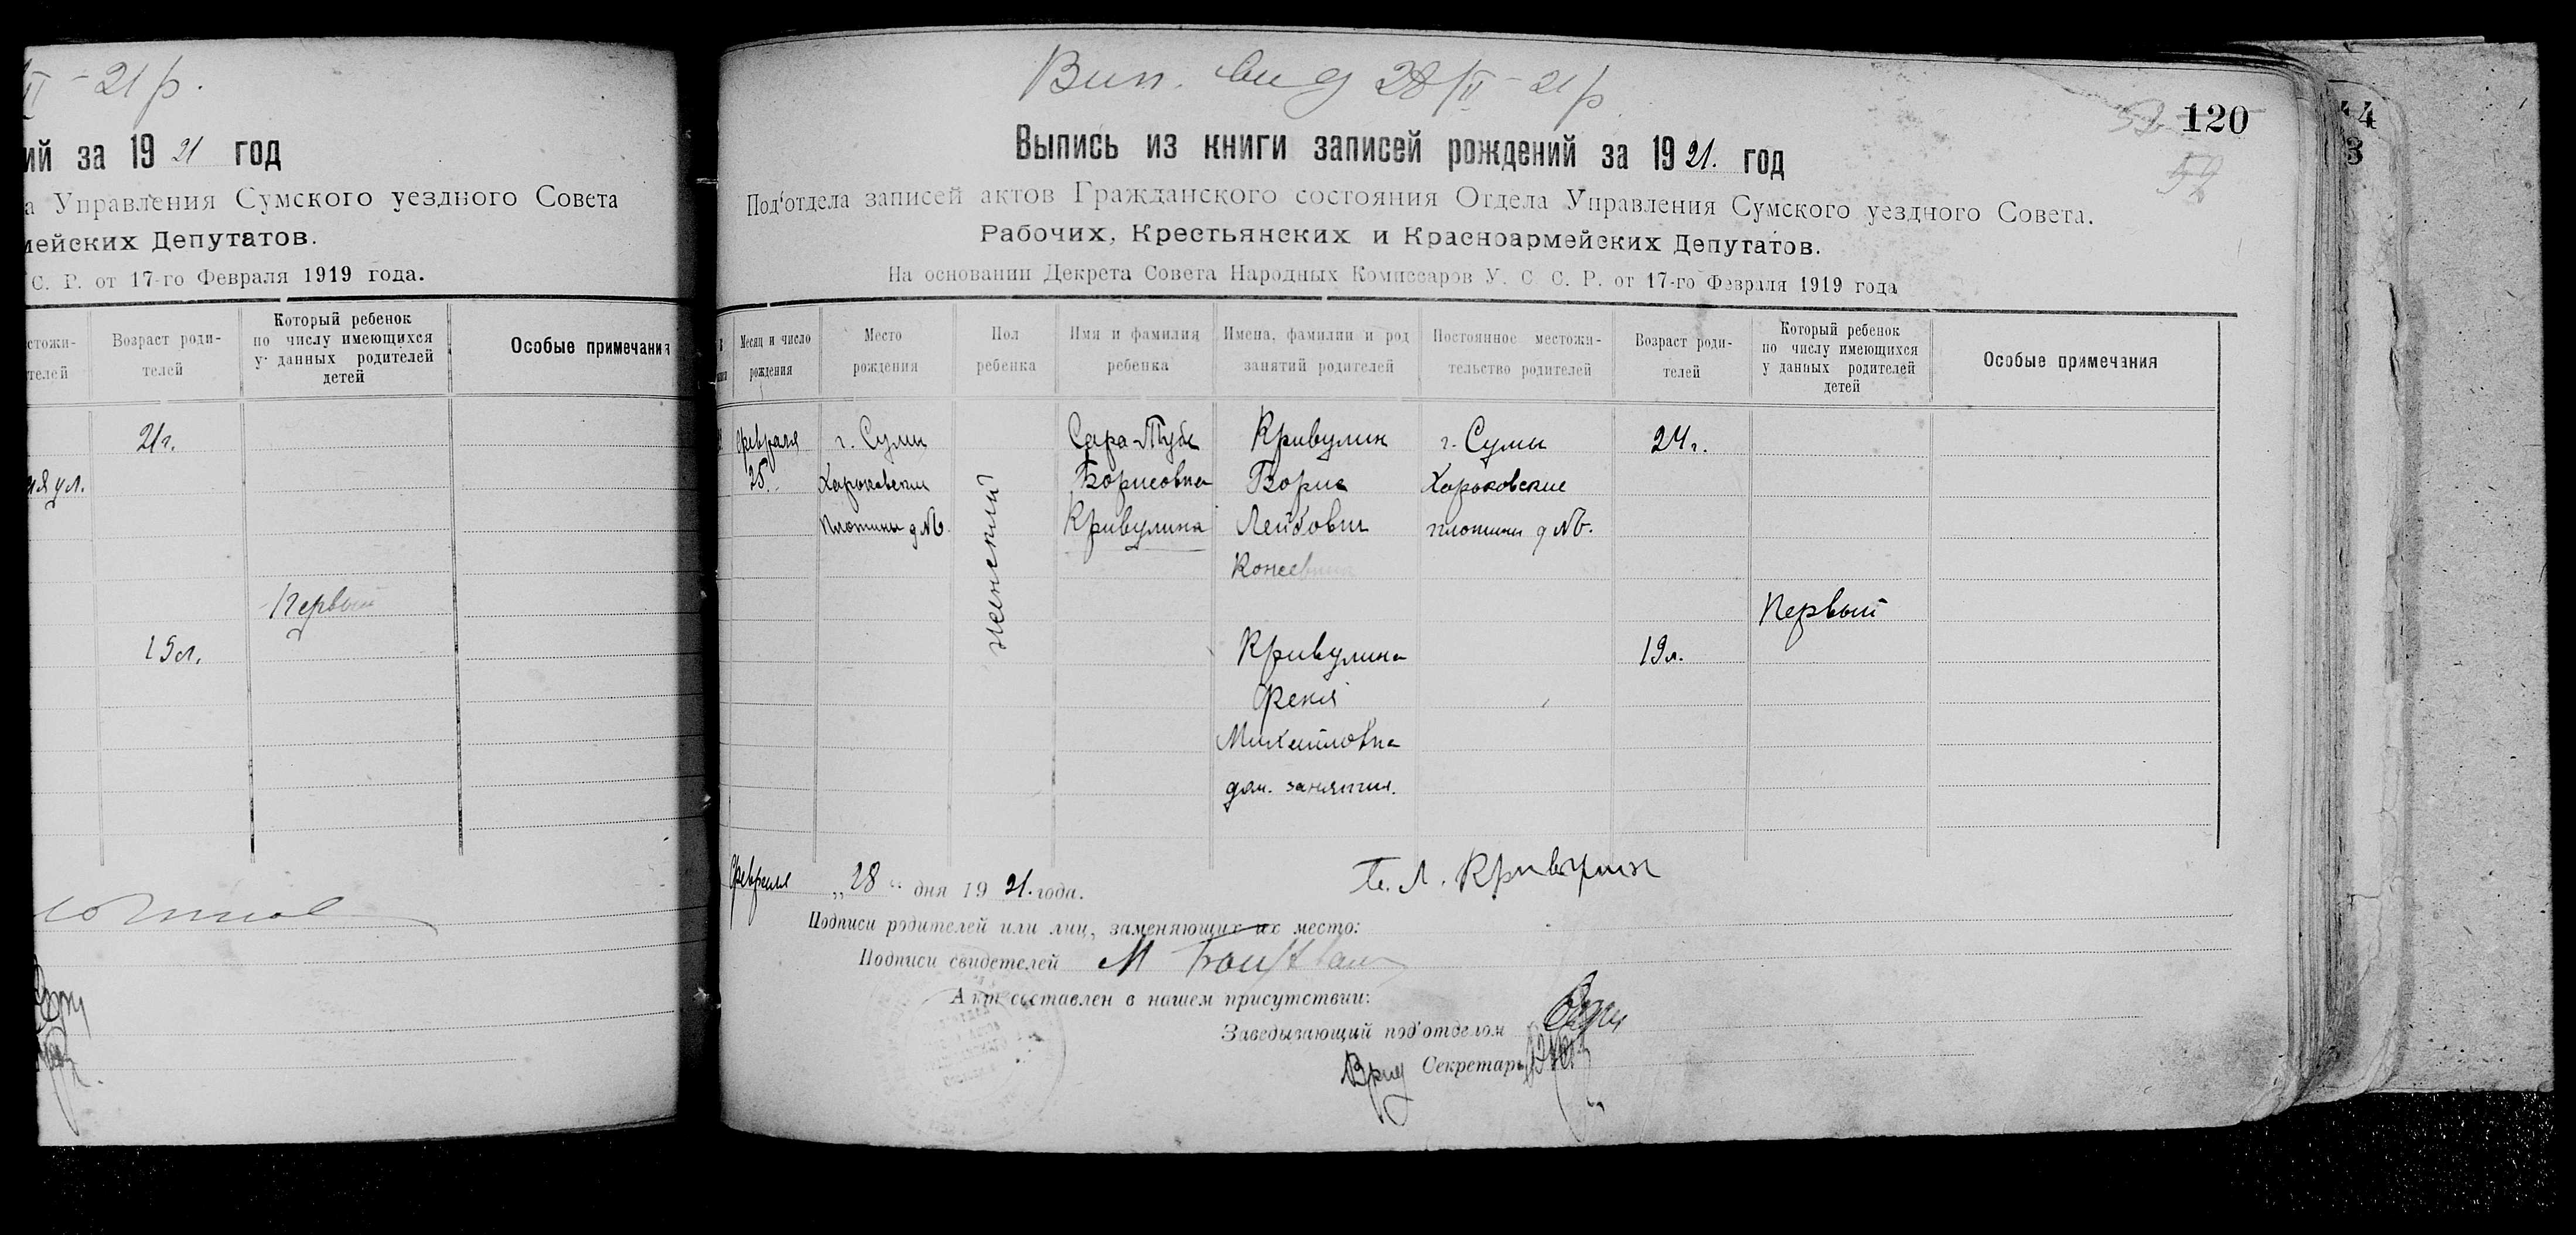 II - 21 р.
ий за 1921 год
а Управления Сумского уездного Совета
мейских Депутатов.
С. Р. от 17-го Февраля 1919 года.
стожи-
телей
Возраст роди-
телей
Который ребенок
по числу имеющихся
у данных родителей
детей
Особые примечания
21 г.
ая ул.
Первый
19 л.
Вип. вид 28/II - 21 р
120
Выпись из книги записей рождений за 1921. год
Под'отдела записей актов Гражданского состояния Отдела Управления Сумского уездного Совета.
Рабочих, Крестьянских и Красноармейских Депутатов.
На основании Декрета Совета Народных Комиссаров У. С. С. Р. от 17-го Февраля 1919 года
Месяц и число
рождения
Место
рождения
Пол
ребенка
Имя и фамилия
ребенка
Имена, фамилии и род
занятий родителей
Постоянное местожи-
тельство родителей
Возраст роди-
телей
Который ребенок
по числу имеющихся
у данных родителей
детей
Особые примечания
Февраля
25.
г. Сумы
Харьковские
Плотины д №
женский
Сара-Туба
Борисовна
Кривулина
Кривулин
Борис
Лейбович
Кожевник
Кривулина
Феня
Михайловна
дом. занятия.
г. Сумы
Харьковские
плотины д №.
24 г.
19 л.
Первый
Февраля „28" дня 1921. года.
Б. Л. Кривулин
Подписи родителей или лиц, заменяющих их место:
Подписи свидетелей М
Акт составлен в нашем присутствии:
Заведывающий под'отделом
Врид Секретарь